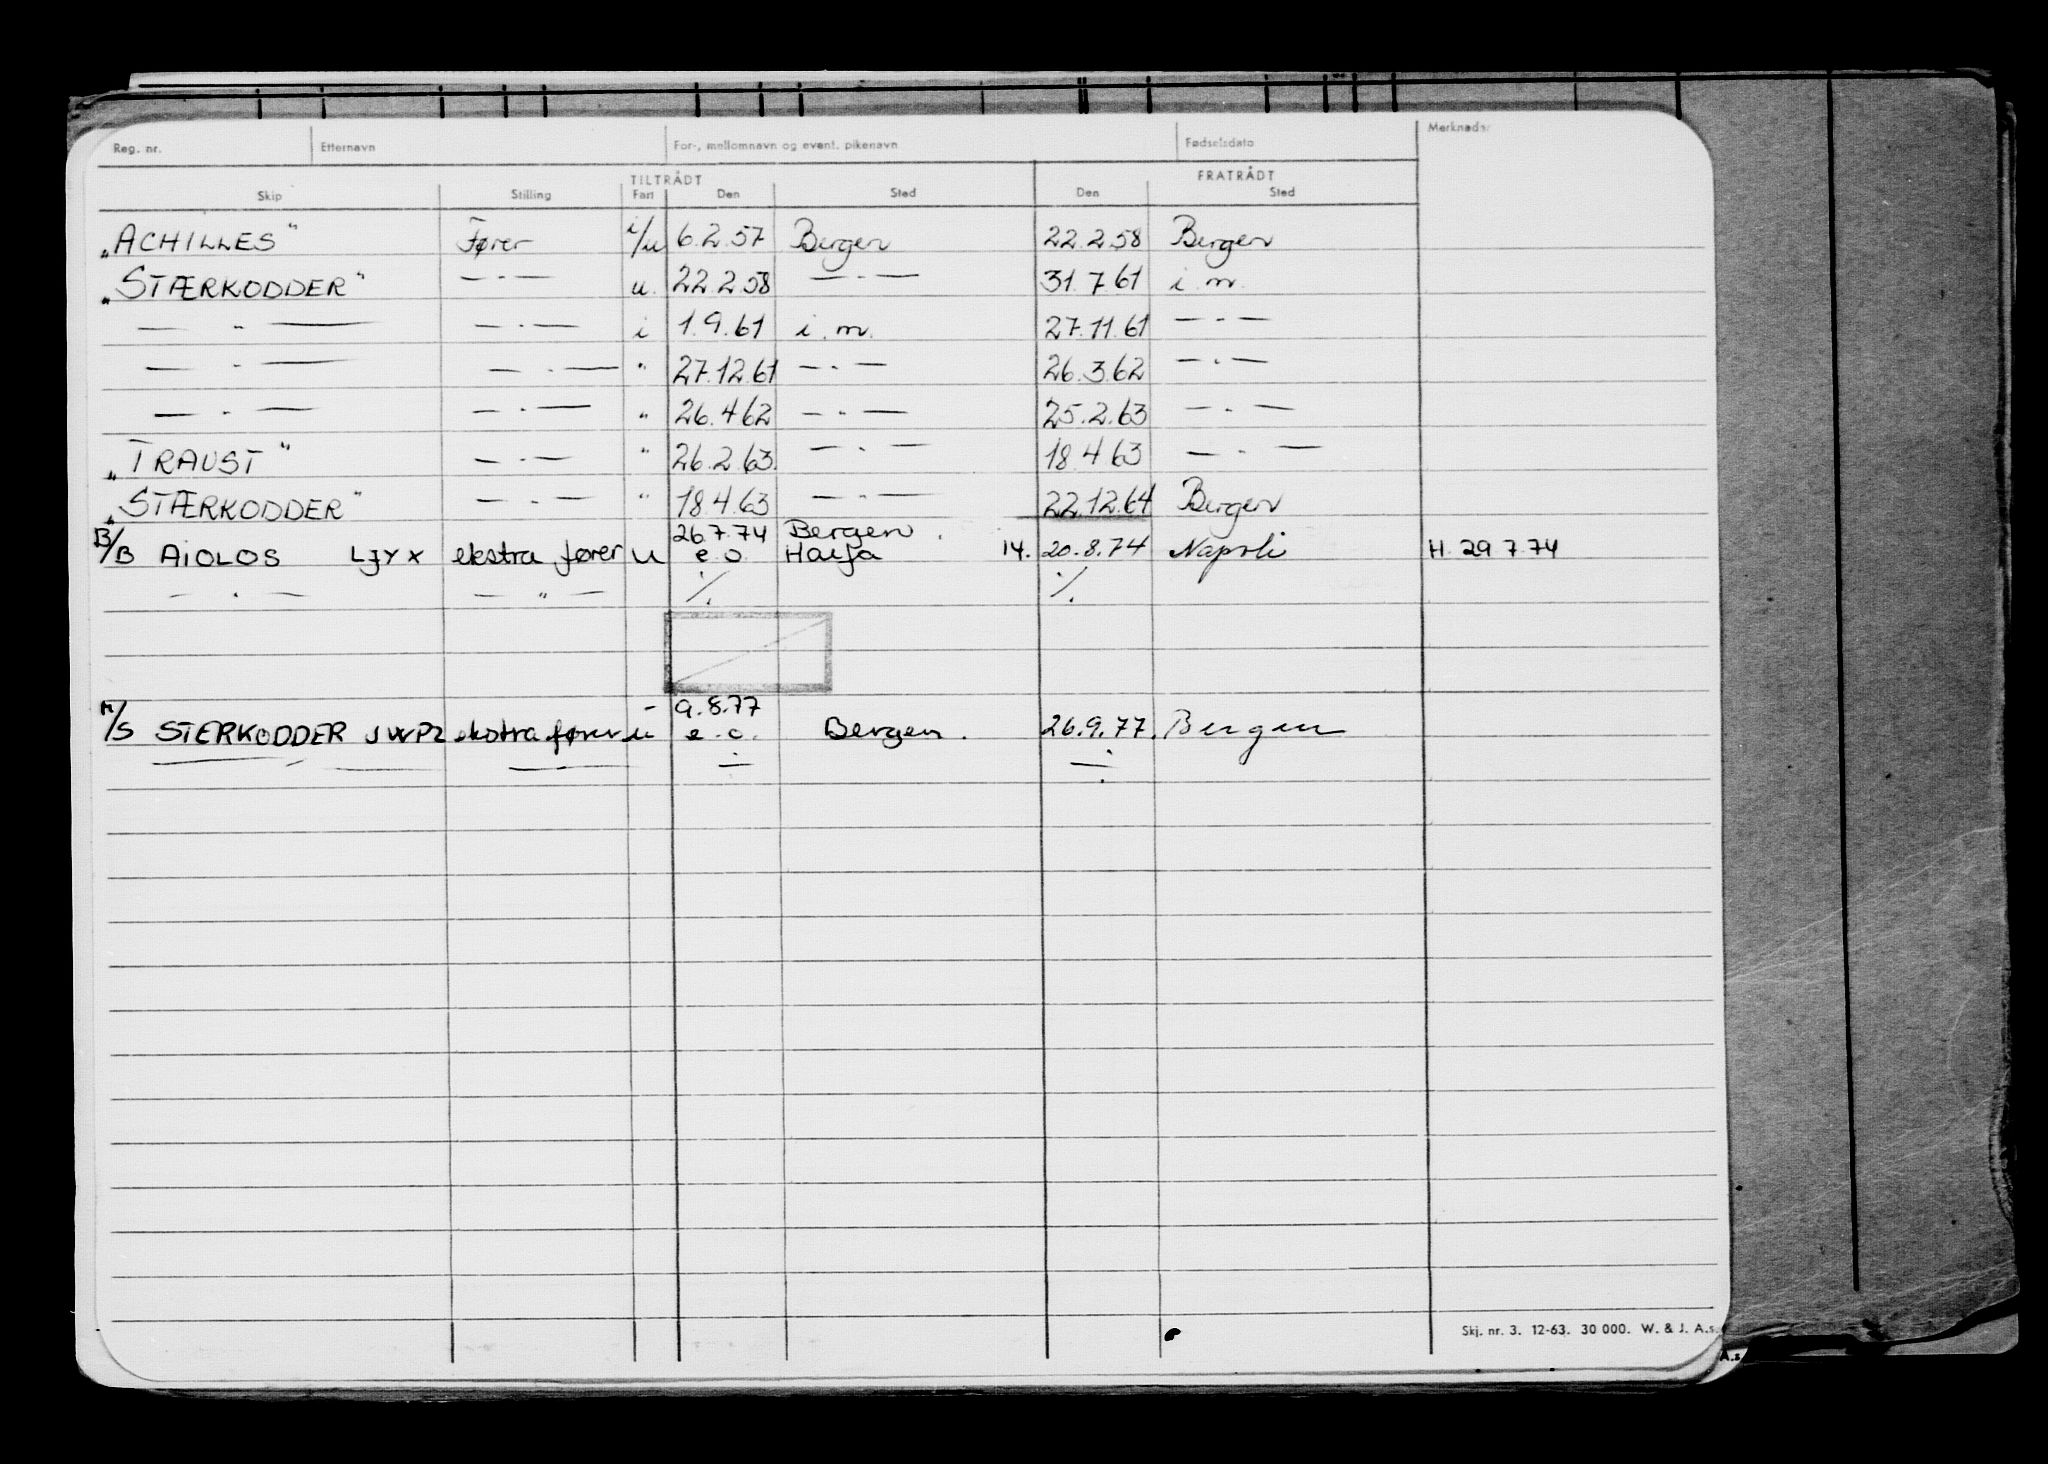 Reg. nr. Etternavn For-, mellomnavn og event. pikenavn Fødselsdato Merknader
TILTRÅDT FRATRÅDT
Skip Stilling Fart Den Sted Den Sted
„ACHILLES" Fører i/u 6.2.57 Bergen 22.2.58 Bergen
„STÆRKODDER" — · — u. 22.2.58 — · — 31.7.61 i. m.
— " — — · — i 1.9.61 i. m. 27.11.61 — · —
— " — — · — " 27.12.61 — · — 26.3.62 — · —
— · — — · — " 26.4.62 — · — 25.2.63 — · —
„TRAUST" — · — " 26.2.63. — · — 18.4.63 — · —
„STÆRKODDER" — · — " 18.4.63 — · — 22.12.64 Bergen
26.7.74 Bergen.
B/B AIOLOS LJYX ekstra fører u e.o. Haifa 14. 20.8.74 Napoli H. 29.7.74
— · — — " — ·/. ·/.
9.8.77
M/S STERKODDER JWPZ ekstra fører u e.o. Bergen. 26.9.77. Bergen
— " — — · — ÷ ÷
Skj. nr. 3. 12-63. 30 000. W. & J. A.s.
A.s